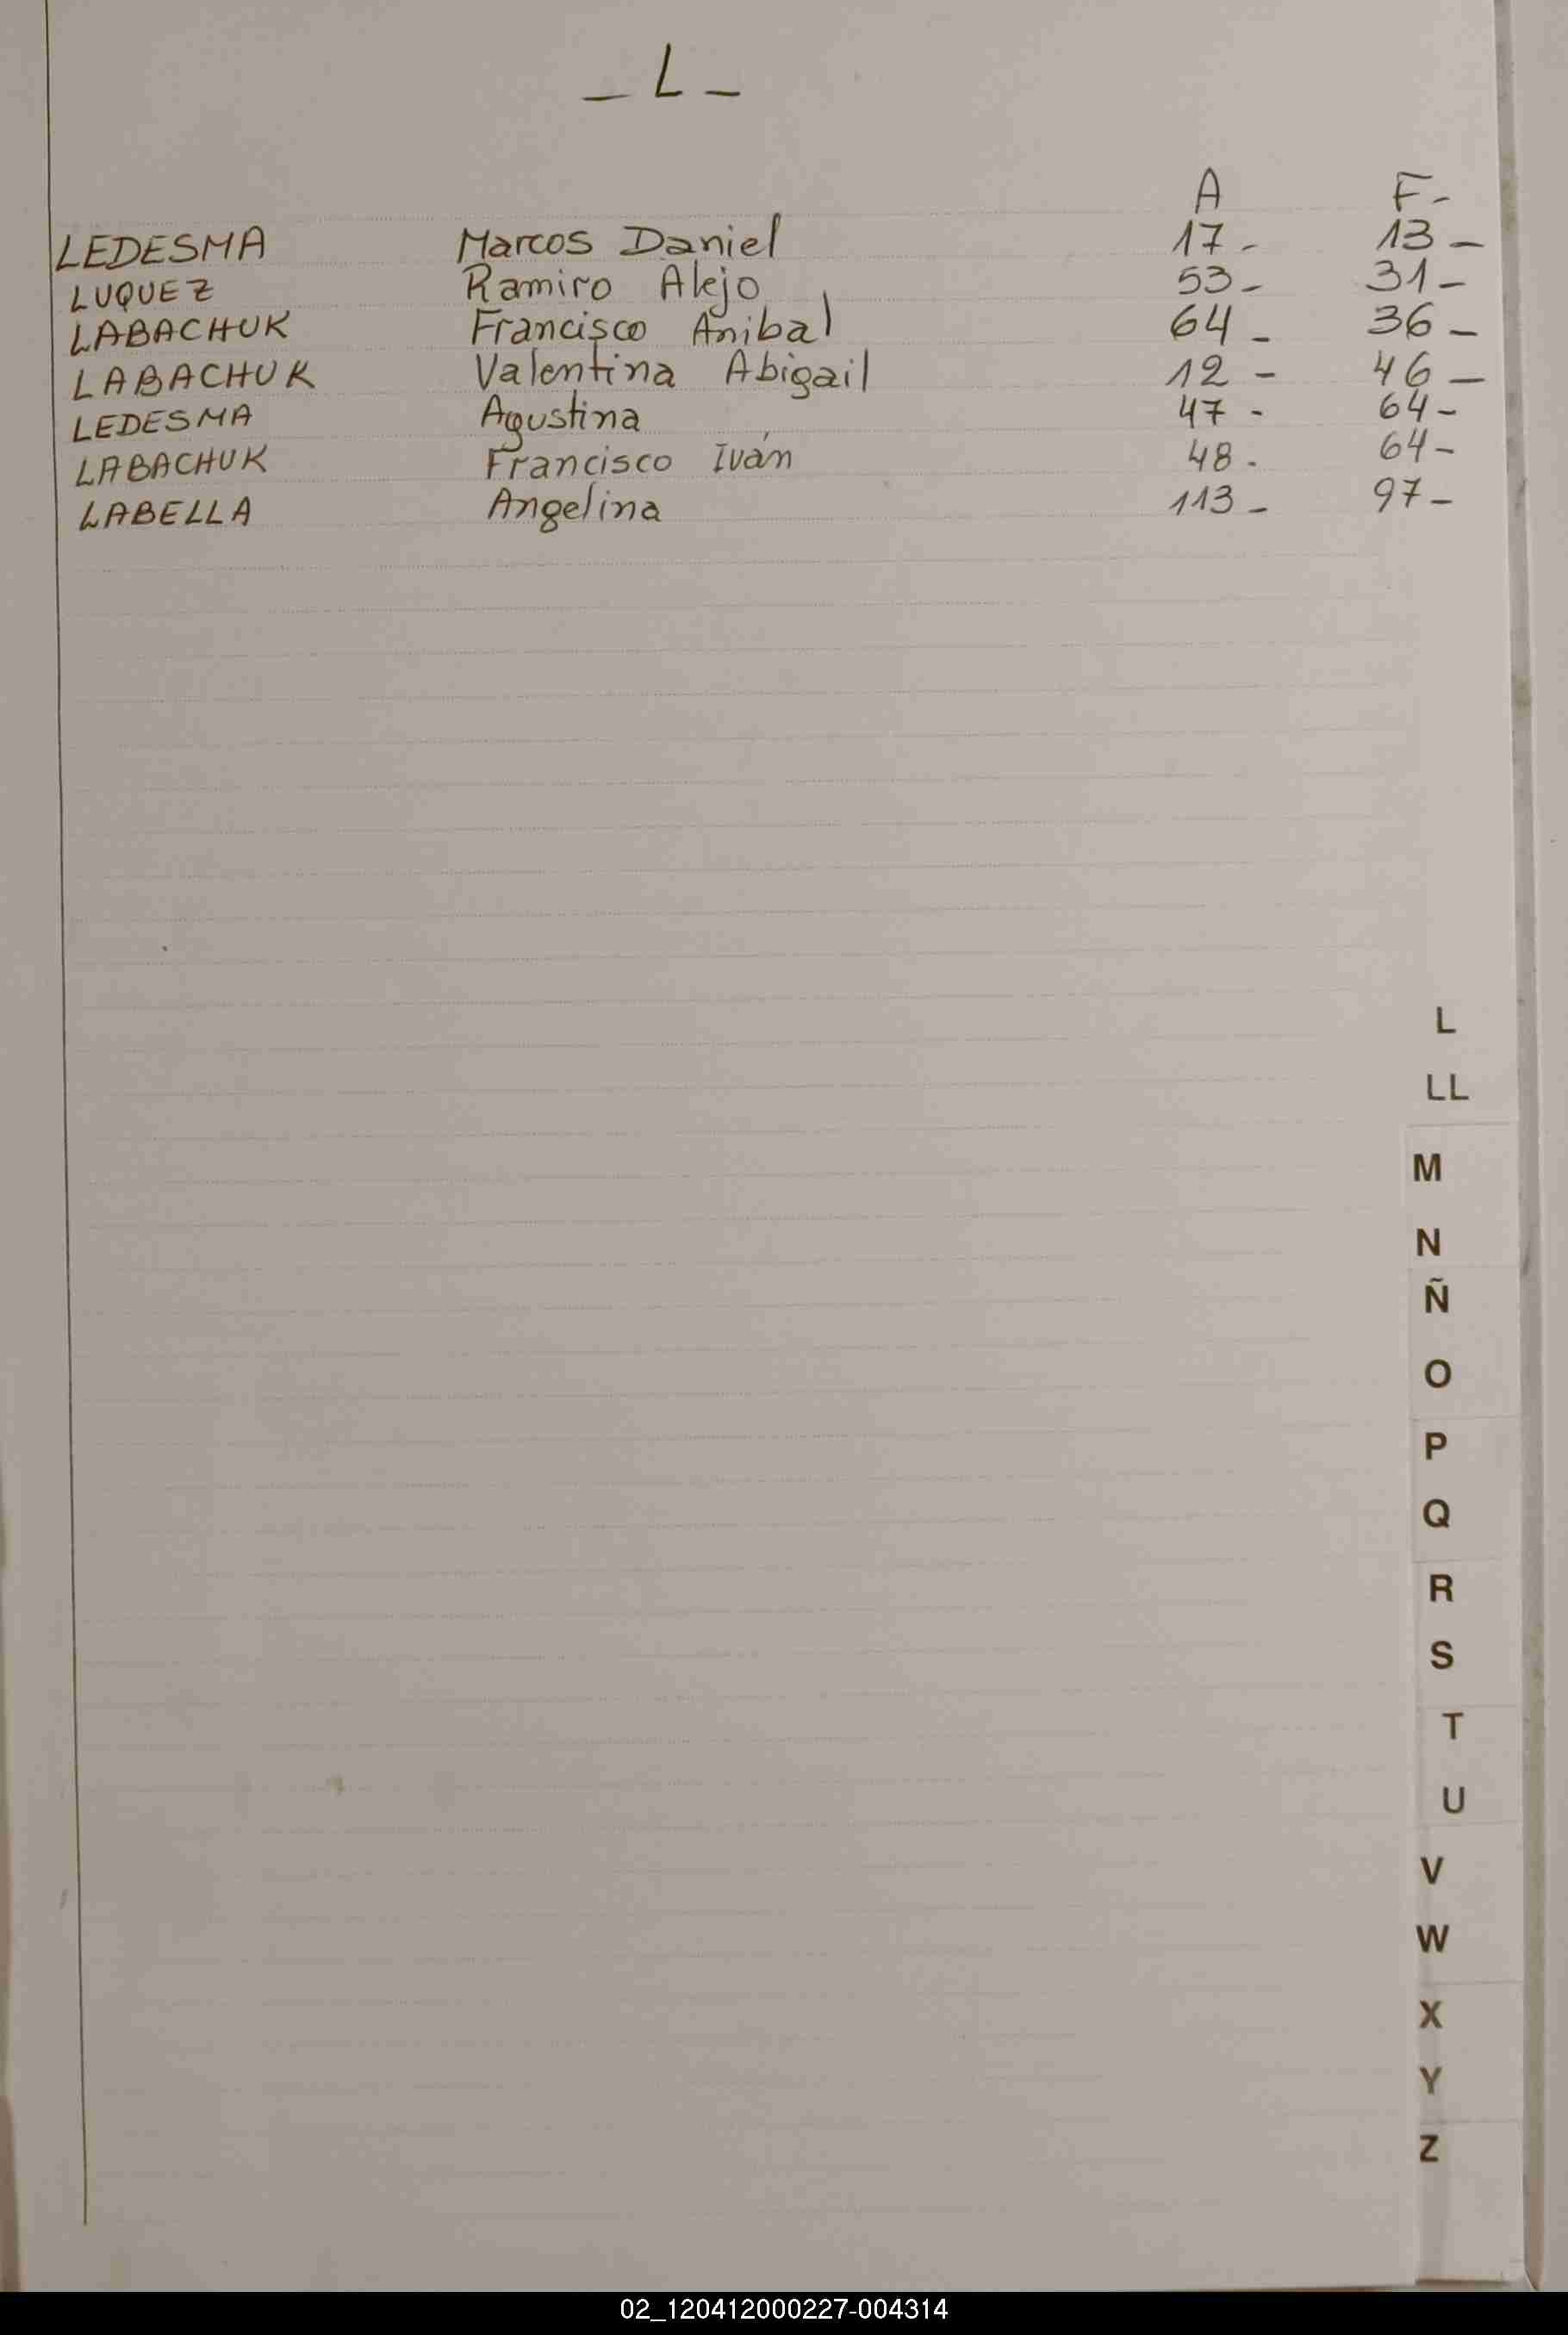 _ L _
A F-
LEDESMA Marcos Daniel 17- 13-
LUQUEZ Ramiro Alejo 53- 31-
LABACHUK Francisco Anibal 64- 36-
LABACHUK Valentina Abigail 12- 46-
LEDESMA Agustina 47- 64-
LABACHUK Francisco Iván 48- 64-
LABELLA Angelina 113- 97-
L
LL
M
N
Ñ
O
P
Q
R
S
T
U
V
W
X
Y
Z
02_120412000227-004314